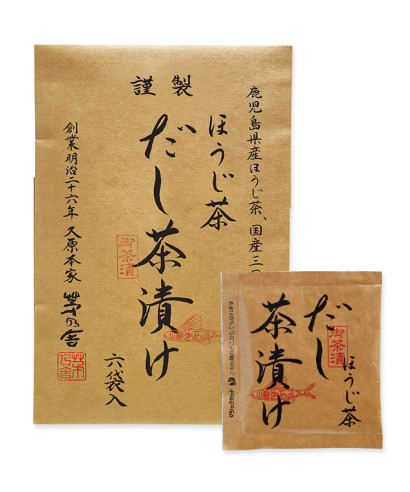 謹製
鹿児島県産ほうじ茶、国産
ほうじ茶
だし茶漬け
御茶漬
創業明治二十六年 久原本家 茅乃舎
六袋入
ほうじ茶
だし
茶漬け
御茶漬